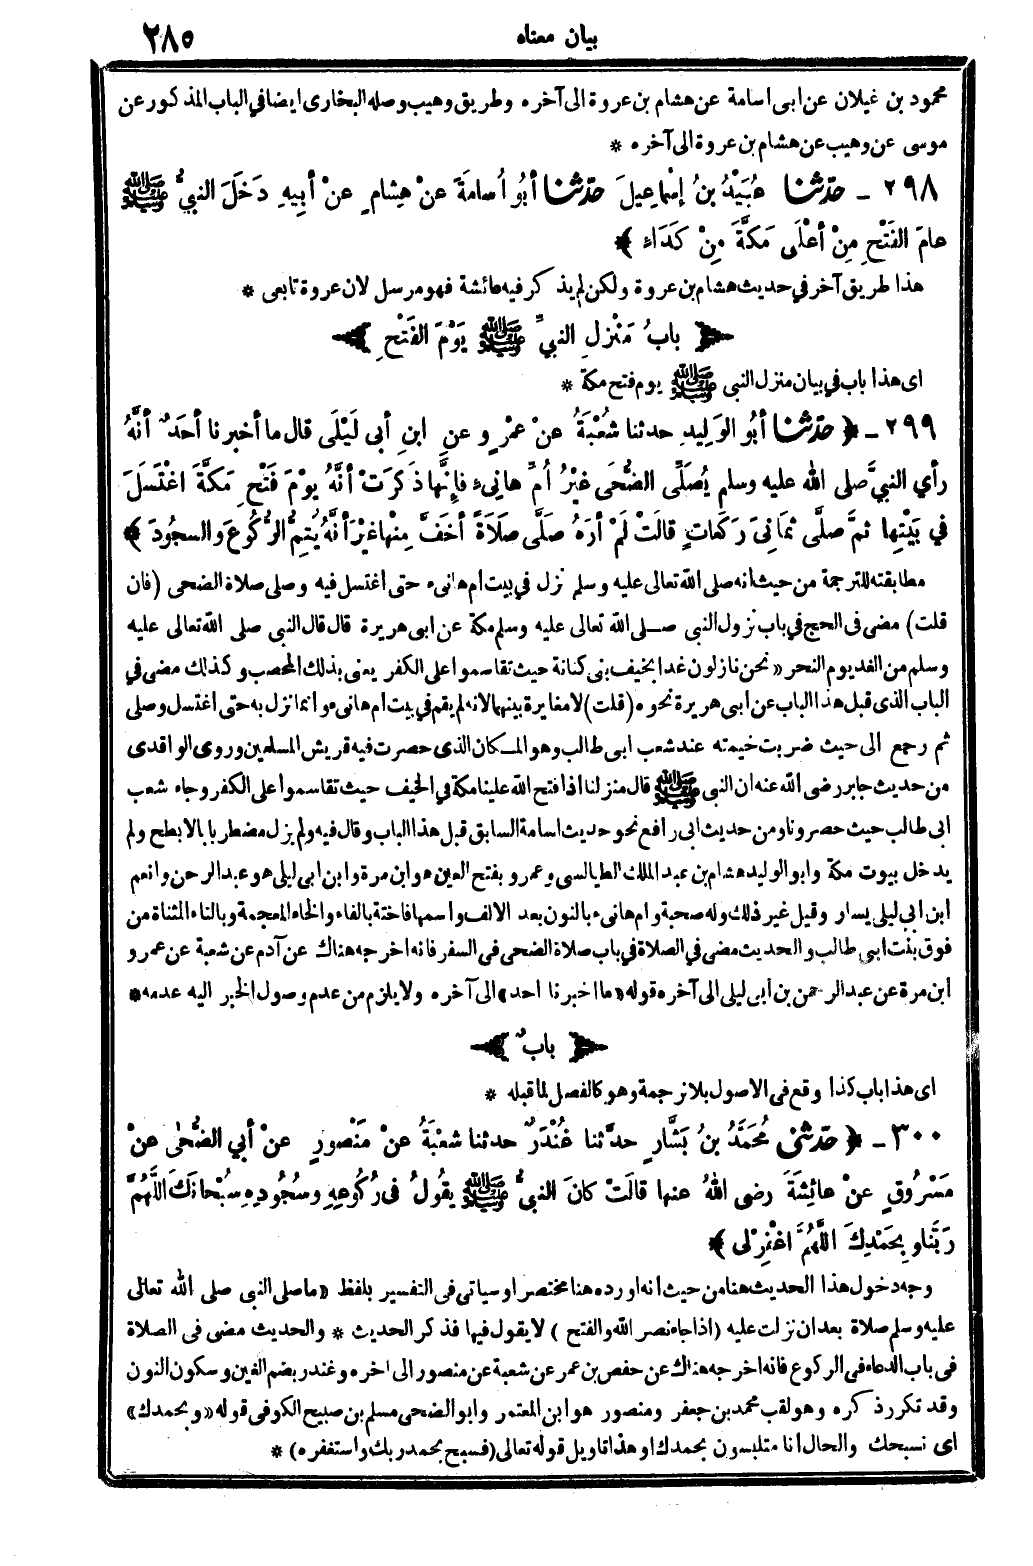 بيان معناه ٢٨٥
محمود بن غيلان عن ابى اسامة عن هشام بن عروة الى آخره وطريق وهيب وصله البخارى ايضا في الباب المذكور عن
موسى عن وهيب عن هشام بن عروة الى آخره *
٢٩٨ ـ حدّثنا عُبَيْدُ بنُ إسْماعِيلَ حدّثنا أبُو أُسامَةَ عنْ هِشامٍ عنْ أبيهِ دَخَلَ النبيُّ ﷺ
عامَ الفَتْحِ مِنْ أعْلَى مَكَّةَ مِنْ كَدَاءٍ ﴾
هذا طريق آخر في حديث هشام بن عروة ولكن لم يذكر فيه عائشة فهو مرسل لان عروة تابعى *
﴿ بابُ مَنْزِلِ النبيِّ ﷺ يَوْمَ الفَتْحِ ﴾
اى هذا باب في بيان منزل النبى ﷺ يوم فتح مكة *
٢٩٩ ـ ﴿ حدّثنا أبُو الوَلِيدِ حدثنا شُعْبَةُ عنْ عمْرٍو عنِ ابنِ أبي لَيْلَى قال ما أخبرنا أحَدٌ أنَّهُ
رأي النبيَّ صلى الله عليه وسلم يُصَلِّى الضُّحَى غيْرُ أُمِّ هانِىءٍ فإنَّها ذَكَرَتْ أنَّهُ يوْمَ فَتْحِ مَكَّةَ اغْتَسَلَ
في بَيْتِها ثمَّ صلَّى ثمَانِىَ رَكَعاتٍ قالَتْ لَمْ أرَهُ صَلَّى صلَاةً أخَفَّ مِنْها غيْرَ أنَّهُ يُتِمُّ الرُّكُوعَ والسجُودَ ﴾
مطابقته للترجمة من حيث انه صلى الله تعالى عليه وسلم نزل في بيت ام هانىء حتى اغتسل فيه وصلى صلاة الضحى (فان
قلت) مضى فى الحج في باب نزول النبى صلى الله تعالى عليه وسلم مكة عن ابى هريرة قال قال النبى صلى الله تعالى عليه
وسلم من الغد يوم النحر «نحن نازلون غدا بخيف بنى كنانة حيث تقاسموا على الكفر يعنى بذلك المحصب وكذلك مضى في
الباب الذى قبل هذا الباب عن ابى هريرة نحوه (قلت) لا مغايرة بينهما لانه لم يقم في بيت ام هانىء وانما نزل به حتى اغتسل وصلى
ثم رجع الى حيث ضربت خيمته عند شعب ابى طالب وهو المكان الذى حصرت فيه قريش المسلمين وروى الواقدى
من حديث جابر رضى الله عنه ان النبى ﷺ قال منزلنا اذا فتح الله علينا مكة في الخيف حيث تقاسموا على الكفر وجاه شعب
ابى طالب حيث حصرونا ومن حديث ابى رافع نحو حديث اسامة السابق قبل هذا الباب وقال فيه ولم يزل مضطربا بالابطح ولم
يدخل بيوت مكة وابو الوليد هشام بن عبد الملك الطيالسى وعمرو بفتح العين هو ابن مرة وابن ابى ليلى هو عبد الرحمن وانعم
ابن ابى ليلى يسار وقيل غير ذلك وله صحبة وام هانىء بالنون بعد الالف واسمها فاختة بالفاء والخاء المعجمة وبالتاء المثناة من
فوق بنت ابى طالب والحديث مضى في الصلاة في باب صلاة الضحى فى السفر فانه اخرجه هناك عن آدم عن شعبة عن عمرو
ابن مرة عن عبد الرحمن بن أبى ليلى الى آخره قوله «ما اخبرنا احد» الى آخره ولا يلزم من عدم وصول الخبر اليه عدمه *
﴿ بابٌ ﴾
اى هذا باب كذا وقع فى الاصول بلا ترجمة وهو كالفصل لما قبله *
٣٠٠ ـ ﴿ حدّثنى مُحَمَّدُ بنُ بَشَّارٍ حدَّثنا غُنْدَرٌ حدثنا شعْبَةُ عنْ مَنْصورٍ عنْ أبي الضُّحَى عنْ
مَسْرُوقٍ عنْ عائِشَةَ رضى اللهُ عنها قالَتْ كانَ النبىُّ ﷺ يقُولُ فى رُكُوعِهِ وسُجُودِهِ سُبْحانَكَ اللَّهُمَّ
رَبَّنا وبِحَمْدِكَ اللَّهُمَّ اغْفِرْ لى ﴾
وجه دخول هذا الحديث هنا من حيث انه اورده هنا مختصرا وسياتى فى التفسير بلفظ «ما صلى النبى صلى الله تعالى
عليه وسلم صلاة بعد ان نزلت عليه (اذا جاء نصر الله والفتح ) لا يقول فيها فذكر الحديث * والحديث مضى فى الصلاة
فى باب الدعاء فى الركوع فانه اخرجه هناك عن حفص بن عمر عن شعبة عن منصور الى اخره وغندر بضم الغين وسكون النون
وقد تكرر ذكره وهو لقب محمد بن جعفر ومنصور هو ابن المعتمر وابو الضحى مسلم بن صبيح الكوفى قوله «وبحمدك»
اى نسبحك والحال انا متلبسون بحمدك او هذا تاويل قوله تعالى (فسبح بحمد ربك واستغفره) *